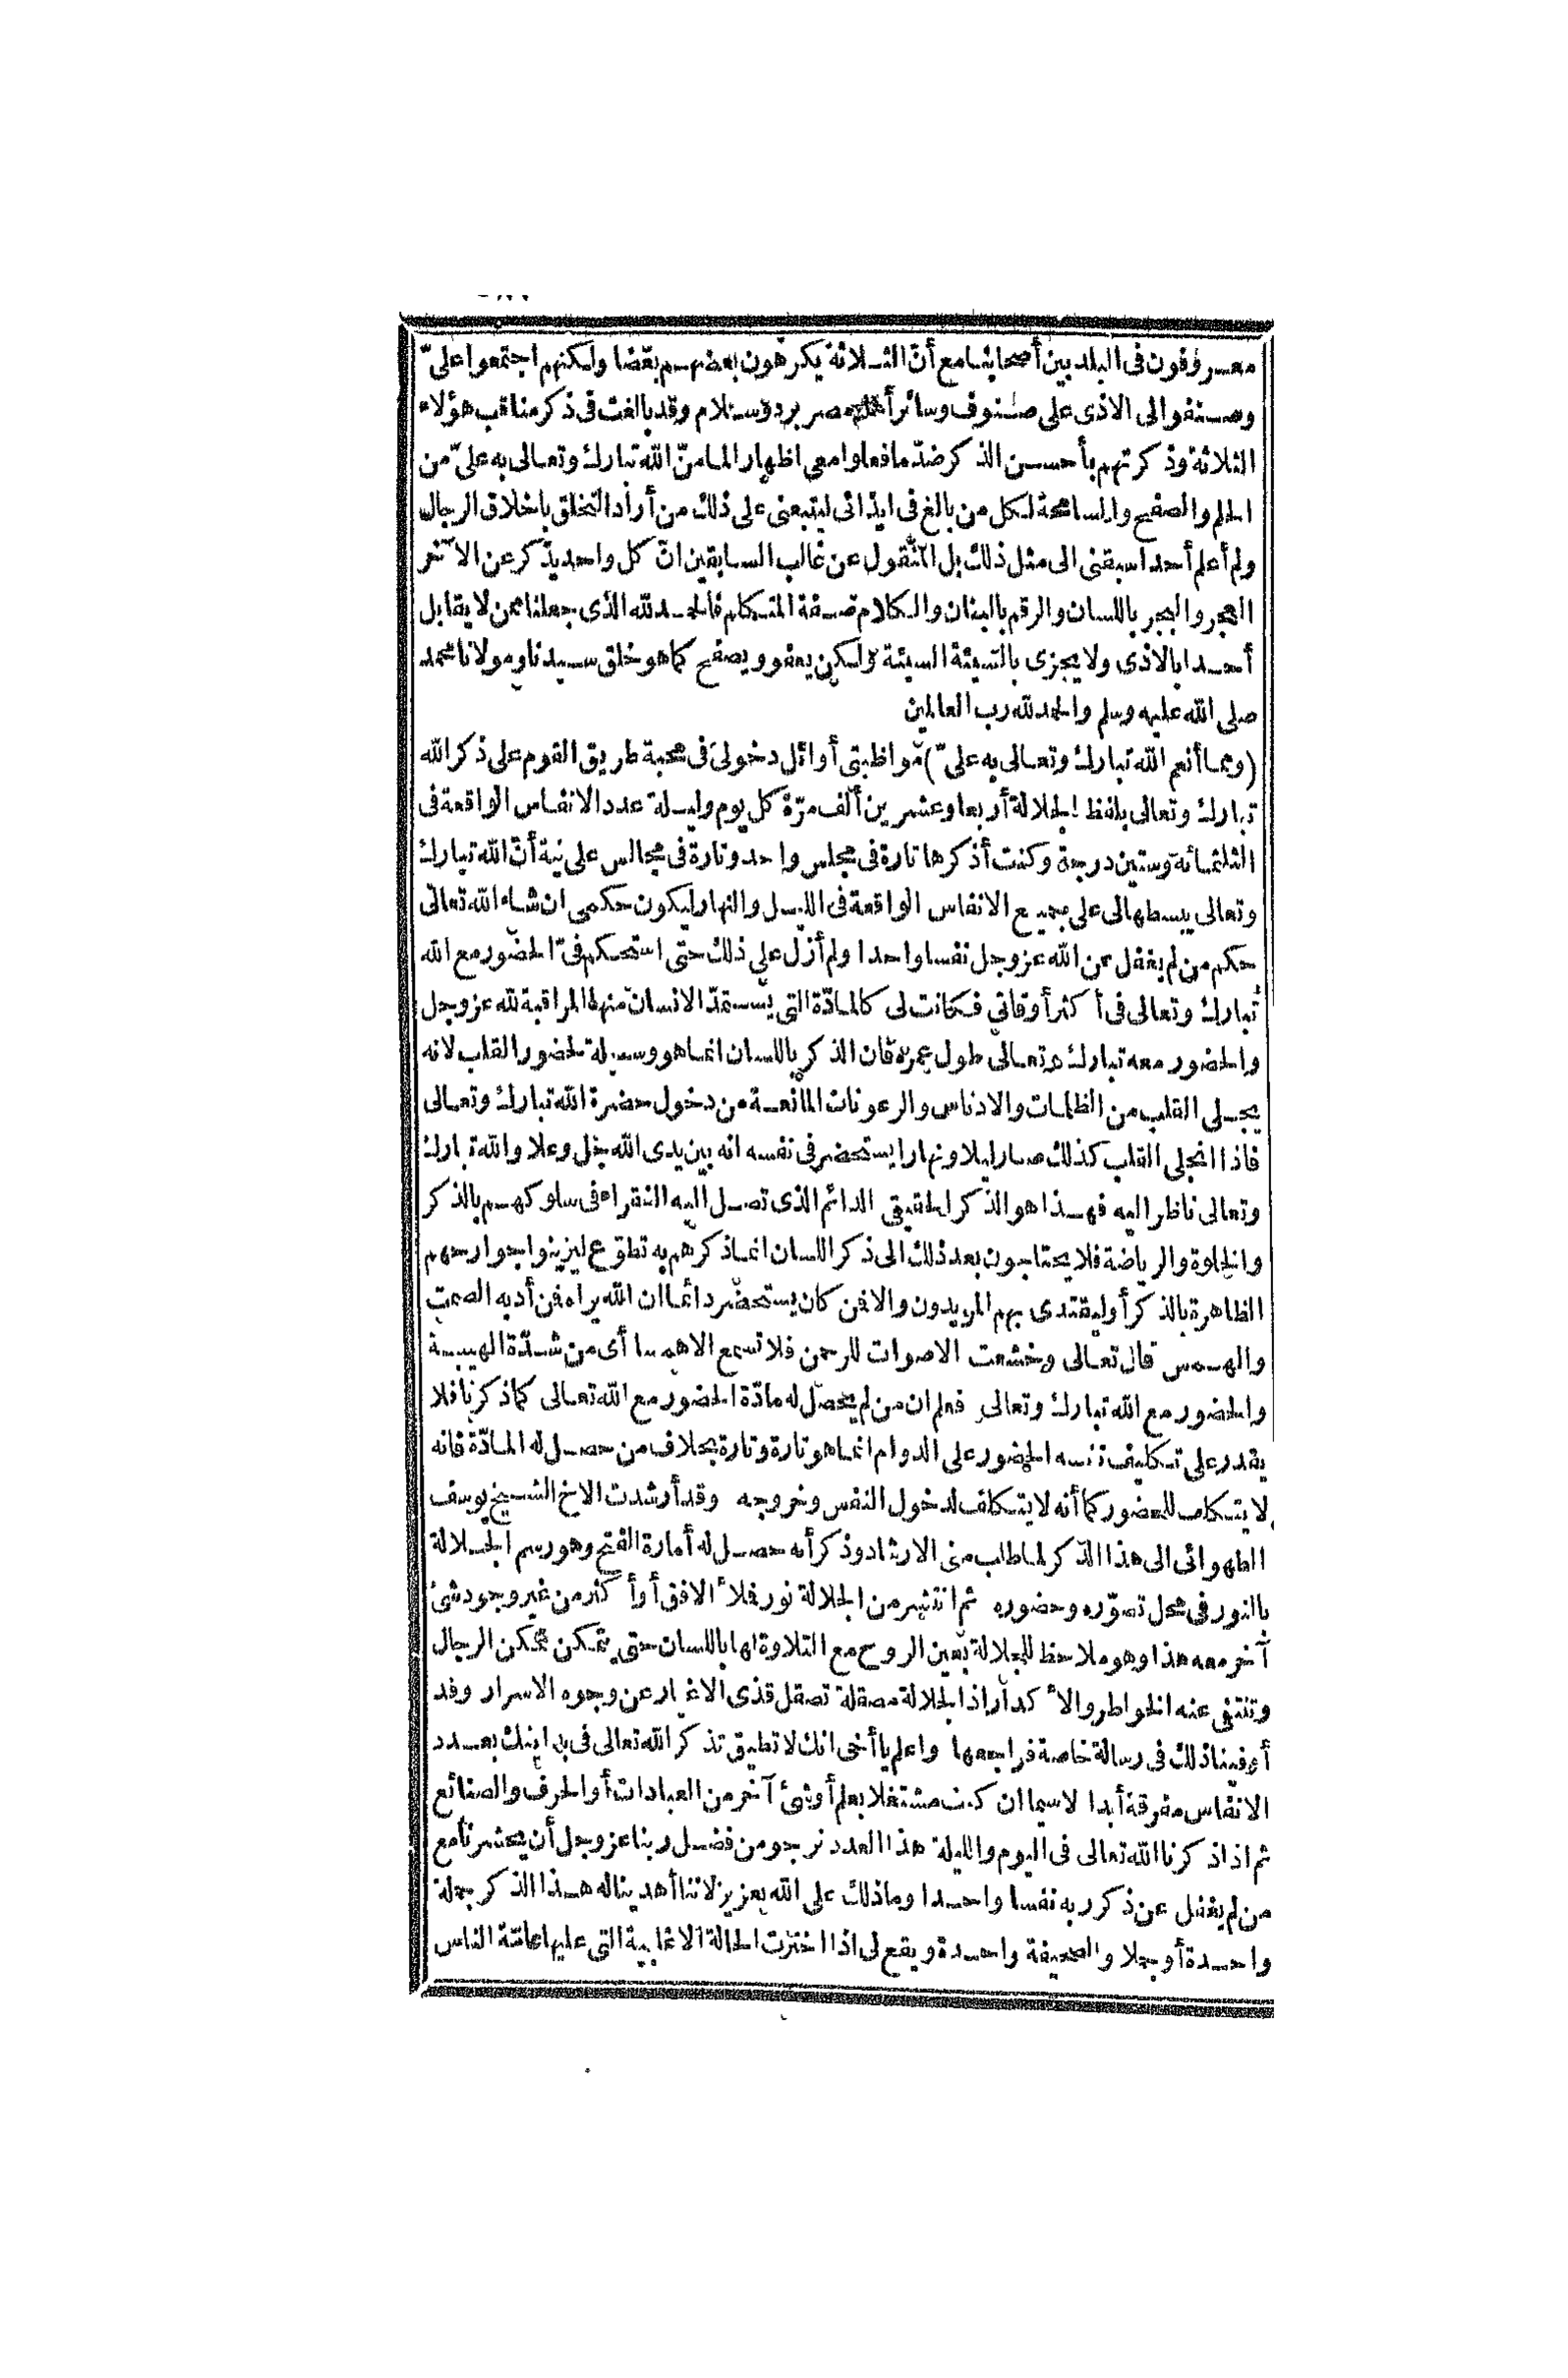 معروفون فى البلد بين أصحابنا مع أنّ الثلاثة يكرهون بعضهم بعضا ولكنهم اجتمعوا علىّ
وصنفوا لى الاذى على صنوف وسائر أهل مصر بردوسلام وقد بالغت فى ذكر مناقب هؤلاء
الثلاثة وذكرتهم بأحسن الذكر ضدّ ما فعلوا معى اظهار المامنّ الله تبارك وتعالى به علىّ من
الحلم والصفح والمسامحة لكل من بالغ فى ايذائى ليتبعنى على ذلك من أراد التخلق باخلاق الرجال
ولم أعلم أحدا سبقنى الى مثل ذلك بل المنقول عن غالب السابقين انّ كل واحد يذكر عن الآخر
العجر والبجر باللسان والرقم بالبنان والكلام صفة المتكلم فالحمد لله الذى جعلنا ممن لا يقابل
أحدا بالاذى ولا يجزى بالسيئة السيئة ولكن يعفو ويصفح كما هو خلق سيدنا ومولانا محمد
صلى الله عليه وسلم والحمد لله رب العالمين
(ومما أنعم الله تبارك وتعالى به علىّ) مواظبتى أوائل دخولى فى محبة طريق القوم على ذكر الله
تبارك وتعالى بلفظ الجلالة أربعا وعشرين ألف مرّة كل يوم وليلة عدد الانفاس الواقعة فى
الثلثمائة وستين درجة وكنت أذكرها تارة فى مجلس واحد وتارة فى مجالس على نية أنّ الله تبارك
وتعالى يبسطها لى على جميع الانفاس الواقعة فى الليل والنهار ليكون حكمى ان شاء الله تعالى
حكم من لم يغفل عن الله عز وجل نفسا واحدا ولم أزل على ذلك حتى استحكم فىّ الحضور مع الله
تبارك وتعالى فى أكثر أوقاتى فكانت لى كالمادّة التى يستمدّ الانسان منها المراقبة لله عز وجل
والحضور معه تبارك وتعالى طول عمره فان الذكر باللسان انما هو وسيلة لحضور القلب لانه
يجلى القلب من الظلمات والادناس والرعونات المانعة من دخول حضرة الله تبارك وتعالى
فاذا انجلى القلب كذلك صار ليلا ونهارا يستحضر فى نفسه انه بين يدى الله جل وعلا والله تبارك
وتعالى ناظر اليه فهذا هو الذكر الحقيقى الدائم الذى تصل اليه الفقراء فى سلوكهم بالذكر
والخلوة والرياضة فلا يحتاجون بعد ذلك الى ذكر اللسان انما ذكرهم به تطوّع ليزينوا جوارحهم
الظاهرة بالذكر أو ليقتدى بهم المريدون والا فمن كان يستحضر دائما ان الله يراه فمن أدبه الصمت
والهمس قال تعالى وخشعت الاصوات للرحمن فلا تسمع الا همسا أى من شدّة الهيبة
والحضور مع الله تبارك وتعالى فعلم ان من لم يحصل له مادّة الحضور مع الله تعالى كما ذكرنا فلا
يقدر على تكليف نفسه الحضور على الدوام انما هو تارة وتارة بخلاف من حصل له المادّة فانه
لا يتكلف للحضور كما أنه لا يتكلف لدخول النفس وخروجه وقد أرشدت الاخ الشيخ يوسف
الطهوائى الى هذا الذكر لما طلب منى الارشاد وذكر أنه حصل له أمارة الفتح وهو رسم الجلالة
بالنور فى محل تصوّره وحضوره ثم انتشر من الجلالة نور فملأ الافق أو أكثر من غير وجود شئ
آخر معه هذا وهو ملاحظ للجلالة بعين الروح مع التلاوة لها باللسان حتى يتمكن تمكن الرجال
وتنتفى عنه الخواطر والأكدار اذ الجلالة مصقلة تصقل قذى الاغيار عن وجوه الاسرار وقد
أوفينا ذلك فى رسالة خاصة فراجعها واعلم يا أخى انك لا تطيق تذكر الله تعالى فى بدايتك بعدد
الانفاس مفرقة أبدا لا سيما ان كنت مشتغلا بعلم أو شئ آخر من العبادات أو الحرف والصنائع
ثم اذا ذكرنا الله تعالى فى اليوم والليلة هذا العدد نرجو من فضل ربنا عز وجل أن يحشرنا مع
من لم يغفل عن ذكر ربه نفسا واحدا وما ذلك على الله بعزيز لاننا أهدينا له هذا الذكر جملة
واحدة أو جملا والصحيفة واحدة ويقع لى اذا اخترت الحالة الاغلبية التى عليها عامّة الناس